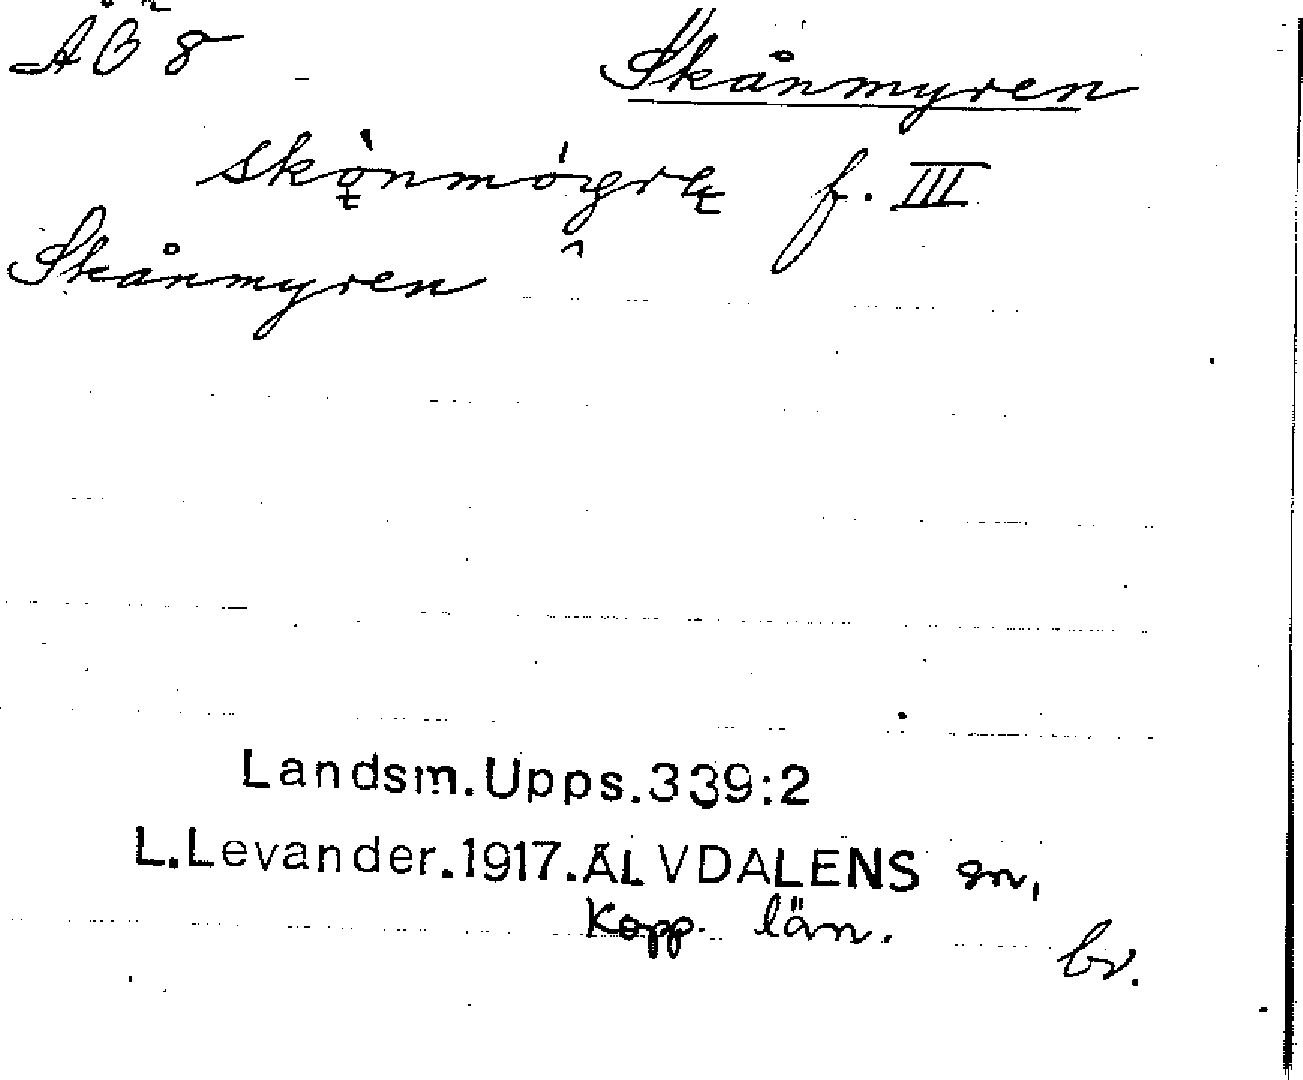 ÅÖ 8
Skånmyren
f. III
Skånmyren
Landsm.Upps.339:2
L.Levander.1917.ÄLVDALENS sn,
Kopp. län.
bv.